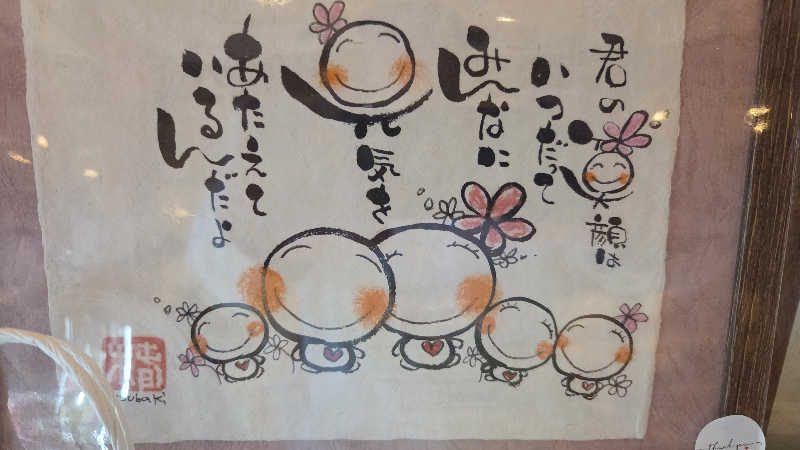 君の笑顔は
いつだって
みんなに
元気を
あたえて
いるんだよ
subaki
Thank you